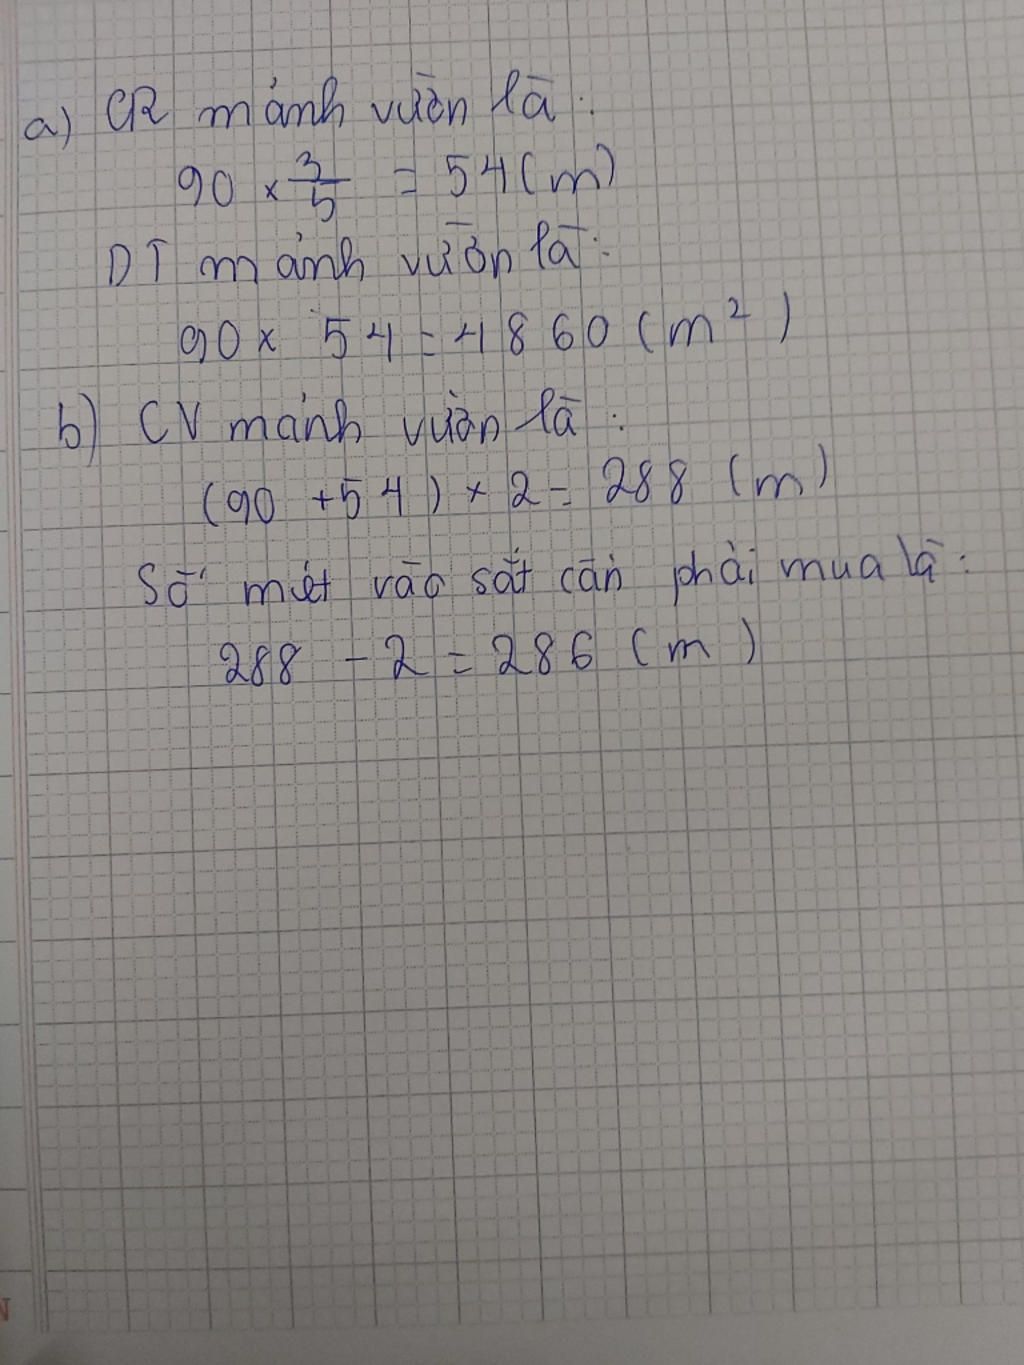 a) CR mảnh vườn là:
90 × 3/5 = 54 (m)
DT mảnh vườn là:
90 × 54 = 4860 (m²)
b) CV mảnh vườn là:
(90 + 54) × 2 = 288 (m)
Số mét rào sắt cần phải mua là:
288 - 2 = 286 (m)
N